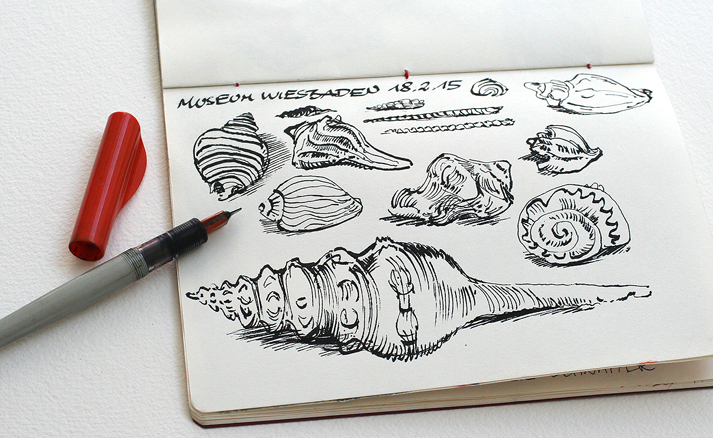 MUSEUM WIESBADEN 18.2.15